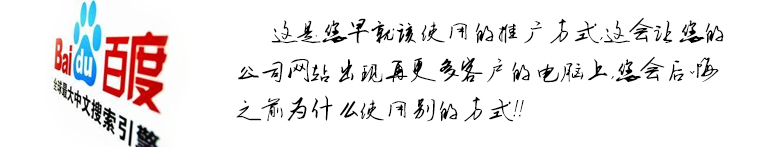 Bai du 百度
全球最大中文搜索引擎
这是您早就该使用的推广方式,这会让您的
公司网站出现再更多客户的电脑上,您会后悔
之前为什么使用别的方式!!